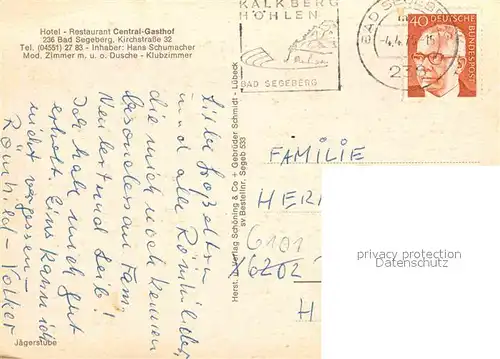 Hotel - Restaurant Central-Gasthof
236 Bad Segeberg, Kirchstraße 32
Tel. (04551) 27 83 - Inhaber: Hans Schumacher
Mod. Zimmer m. u. o. Dusche - Klubzimmer
KALKBERG
HÖHLEN
BAD SEGEBERG
BAD SEGEBERG
40 DEUTSCHE
BUNDESPOST
und alle Römhilder,
die mich noch kennen
besonders an Fam.
Ich hab mich gut
erholt. Eins kann ich
nicht vergessen -
Römhild - Volker
Jägerstube
Herst. u. Verlag Schöning & Co + Gebrüder Schmidt - Lübeck
sv Bestellnr. Segeb 533
FAMILIE
HER
6101
6202
H
privacy protection
Datenschutz